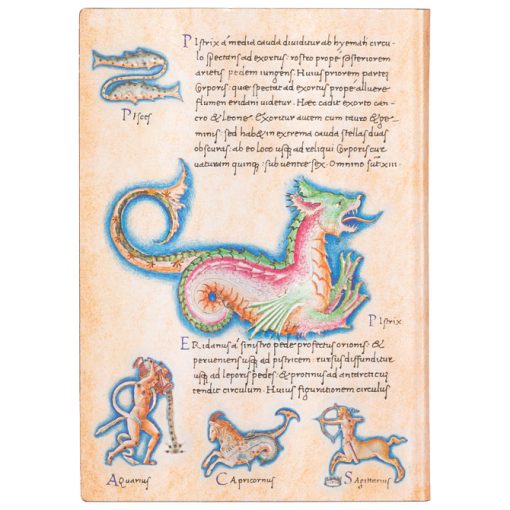 PIstrix á media cauda diuiditur ab hyemali circu-
lo spectans ad exortus: rostro propé posteriorem
arietis pedem iungens. Huius priorem partem
Corporis: quae spectat ad exortus propé alluere
flumen eridani uidetur. Haec cadit exorto can-
cro & Leone: exoritur autem cum tauro & ge-
minis. sed hab& in extrema cauda stellas duas
obscuras. ab eo loco usq; ad reliqui Corporis cur
uaturam quinq;: sub uentre sex. Omnino sunt xiii.
PIsces
PIstrix
ERidanus á sinistro pede profectus orionis: &
perueniens usq; ad pistricem. rursus diffunditur
usq; ad leporis pedes: & protinus ad antarcticum
tendit circulum. Huius figurationem circulus
AQuarius
CApricornus
SAgittarius